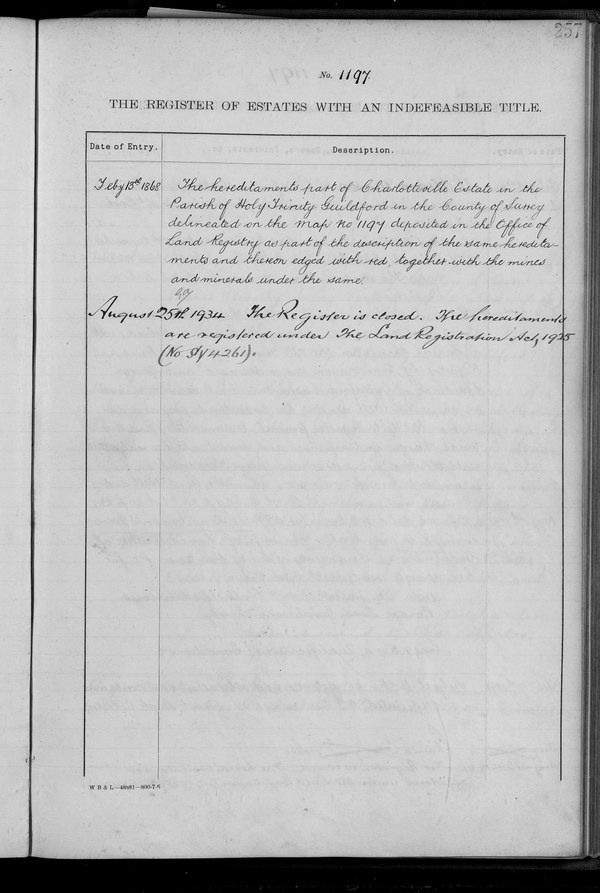 237
No. 1197
THE REGISTER OF ESTATES WITH AN INDEFEASIBLE TITLE.
Date of Entry. Description.
Feby 13th 1868 The hereditaments part of Charlotteville Estate in the
Parish of Holy Trinity Guildford in the County of Surrey
delineated on the Map No 1197 deposited in the Office of
Land Registry as part of the description of the same heredita-
ments and thereon edged with red, together with the mines
and minerals under the same.
August 25th 1934 The Register is closed. The hereditaments
are registered under The Land Registration Act, 1925
(No SY4261).
W B & L—48881—800-7-